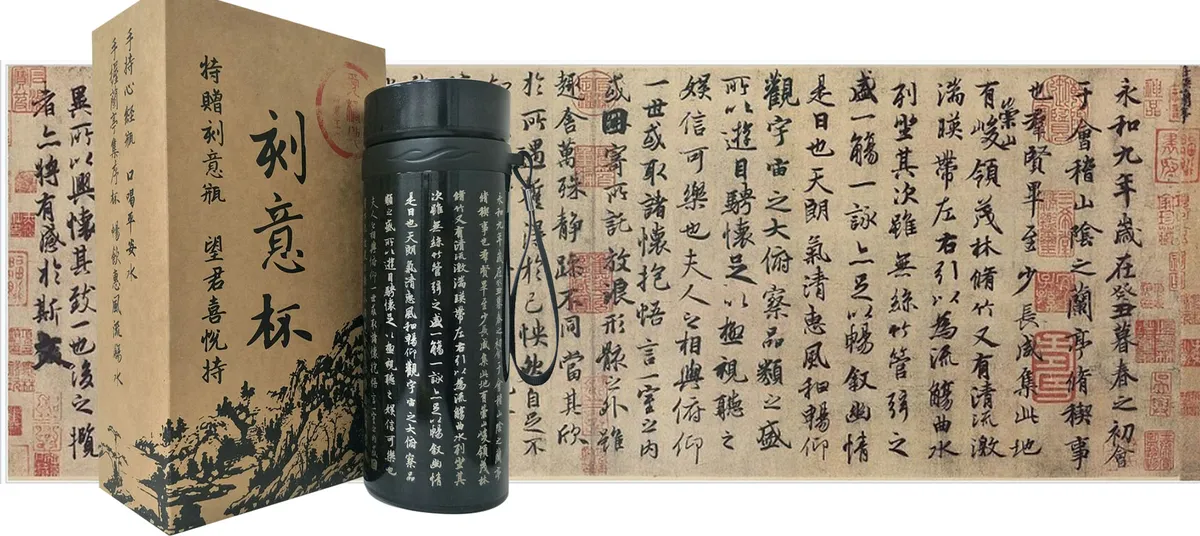 永和九年歲在癸丑暮春之初會
于會稽山陰之蘭亭脩稧事
也羣賢畢至少長咸集此地
有崇山峻領茂林脩竹又有清流激
湍暎帶左右引以為流觴曲水
列坐其次雖無絲竹管弦之
盛一觴一詠亦足以暢敘幽情
是日也天朗氣清惠風和暢仰
觀宇宙之大俯察品類之盛
所以遊目騁懷足以極視聽之
娛信可樂也夫人之相與俯仰
一世或取諸懷抱悟言一室之內
或因寄所託放浪形骸之外雖
趣舍萬殊静躁不同當其欣
於所遇蹔得於己怏然自足不
永和九年歲在癸丑暮春之初會于會稽山陰之蘭亭
脩稧事也羣賢畢至少長咸集此地有崇山峻領茂林
脩竹又有清流激湍暎帶左右引以為流觴曲水列坐其
次雖無絲竹管弦之盛一觴一詠亦足以暢敘幽情
是日也天朗氣清惠風和暢仰觀宇宙之大俯察品
類之盛所以遊目騁懷足以極視聽之娛信可樂也
夫人之相與俯仰一世或取諸懷抱悟言一室之內
刻意杯
特贈刻意瓶 望君喜悅持
手持心經瓶 口喝平安水
手握蘭亭集序杯 暢飲惠風流觴水
異所以興懷其致一也後之攬
者亦將有感於斯文